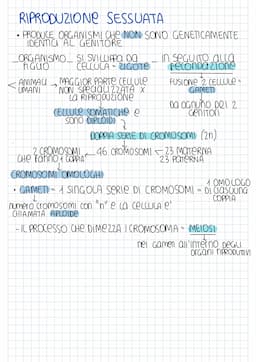 RIPRODUZIONE SESSUATA
• PRODUCE ORGANISMI CHE NON SONO GENETICAMENTE
IDENTICI AL GENITORE
ORGANISMO SI SVILUPPA DA IN SEGUITO ALLA
FIGLIO CELLULA = ZIGOTE FECONDAZIONE
ANIMALI MAGGIOR PARTE CELLULE FUSIONE 2 CELLULE =
UMANI NON SPECIALIZZATA X GAMETI
LA RIPRODUZIONE DA OGNUNO DEI 2
CELLULE SOMATICHE E GENITORI
SONO DIPLOIDI
DOPPIA SERIE DI CROMOSOMI (2n)
2 CROMOSOMI 46 CROMOSOMI 23 MATERNA
CHE FANNO 1 COPPIA 23 PATERNA
CROMOSOMI OMOLOGHI
• GAMETI = 1 SINGOLA SERIE DI CROMOSOMI = 1 OMOLOGO
DI CIASCUNA
COPPIA
NUMERO CROMOSOMI CON "n" E LA CELLULA E'
CHIAMATA APLOIDE
- IL PROCESSO CHE DIMEZZA I CROMOSOMA = MEIOSI
NEI GAMETI ALL'INTERNO DEGLI
ORGANI RIPRODUTTIVI